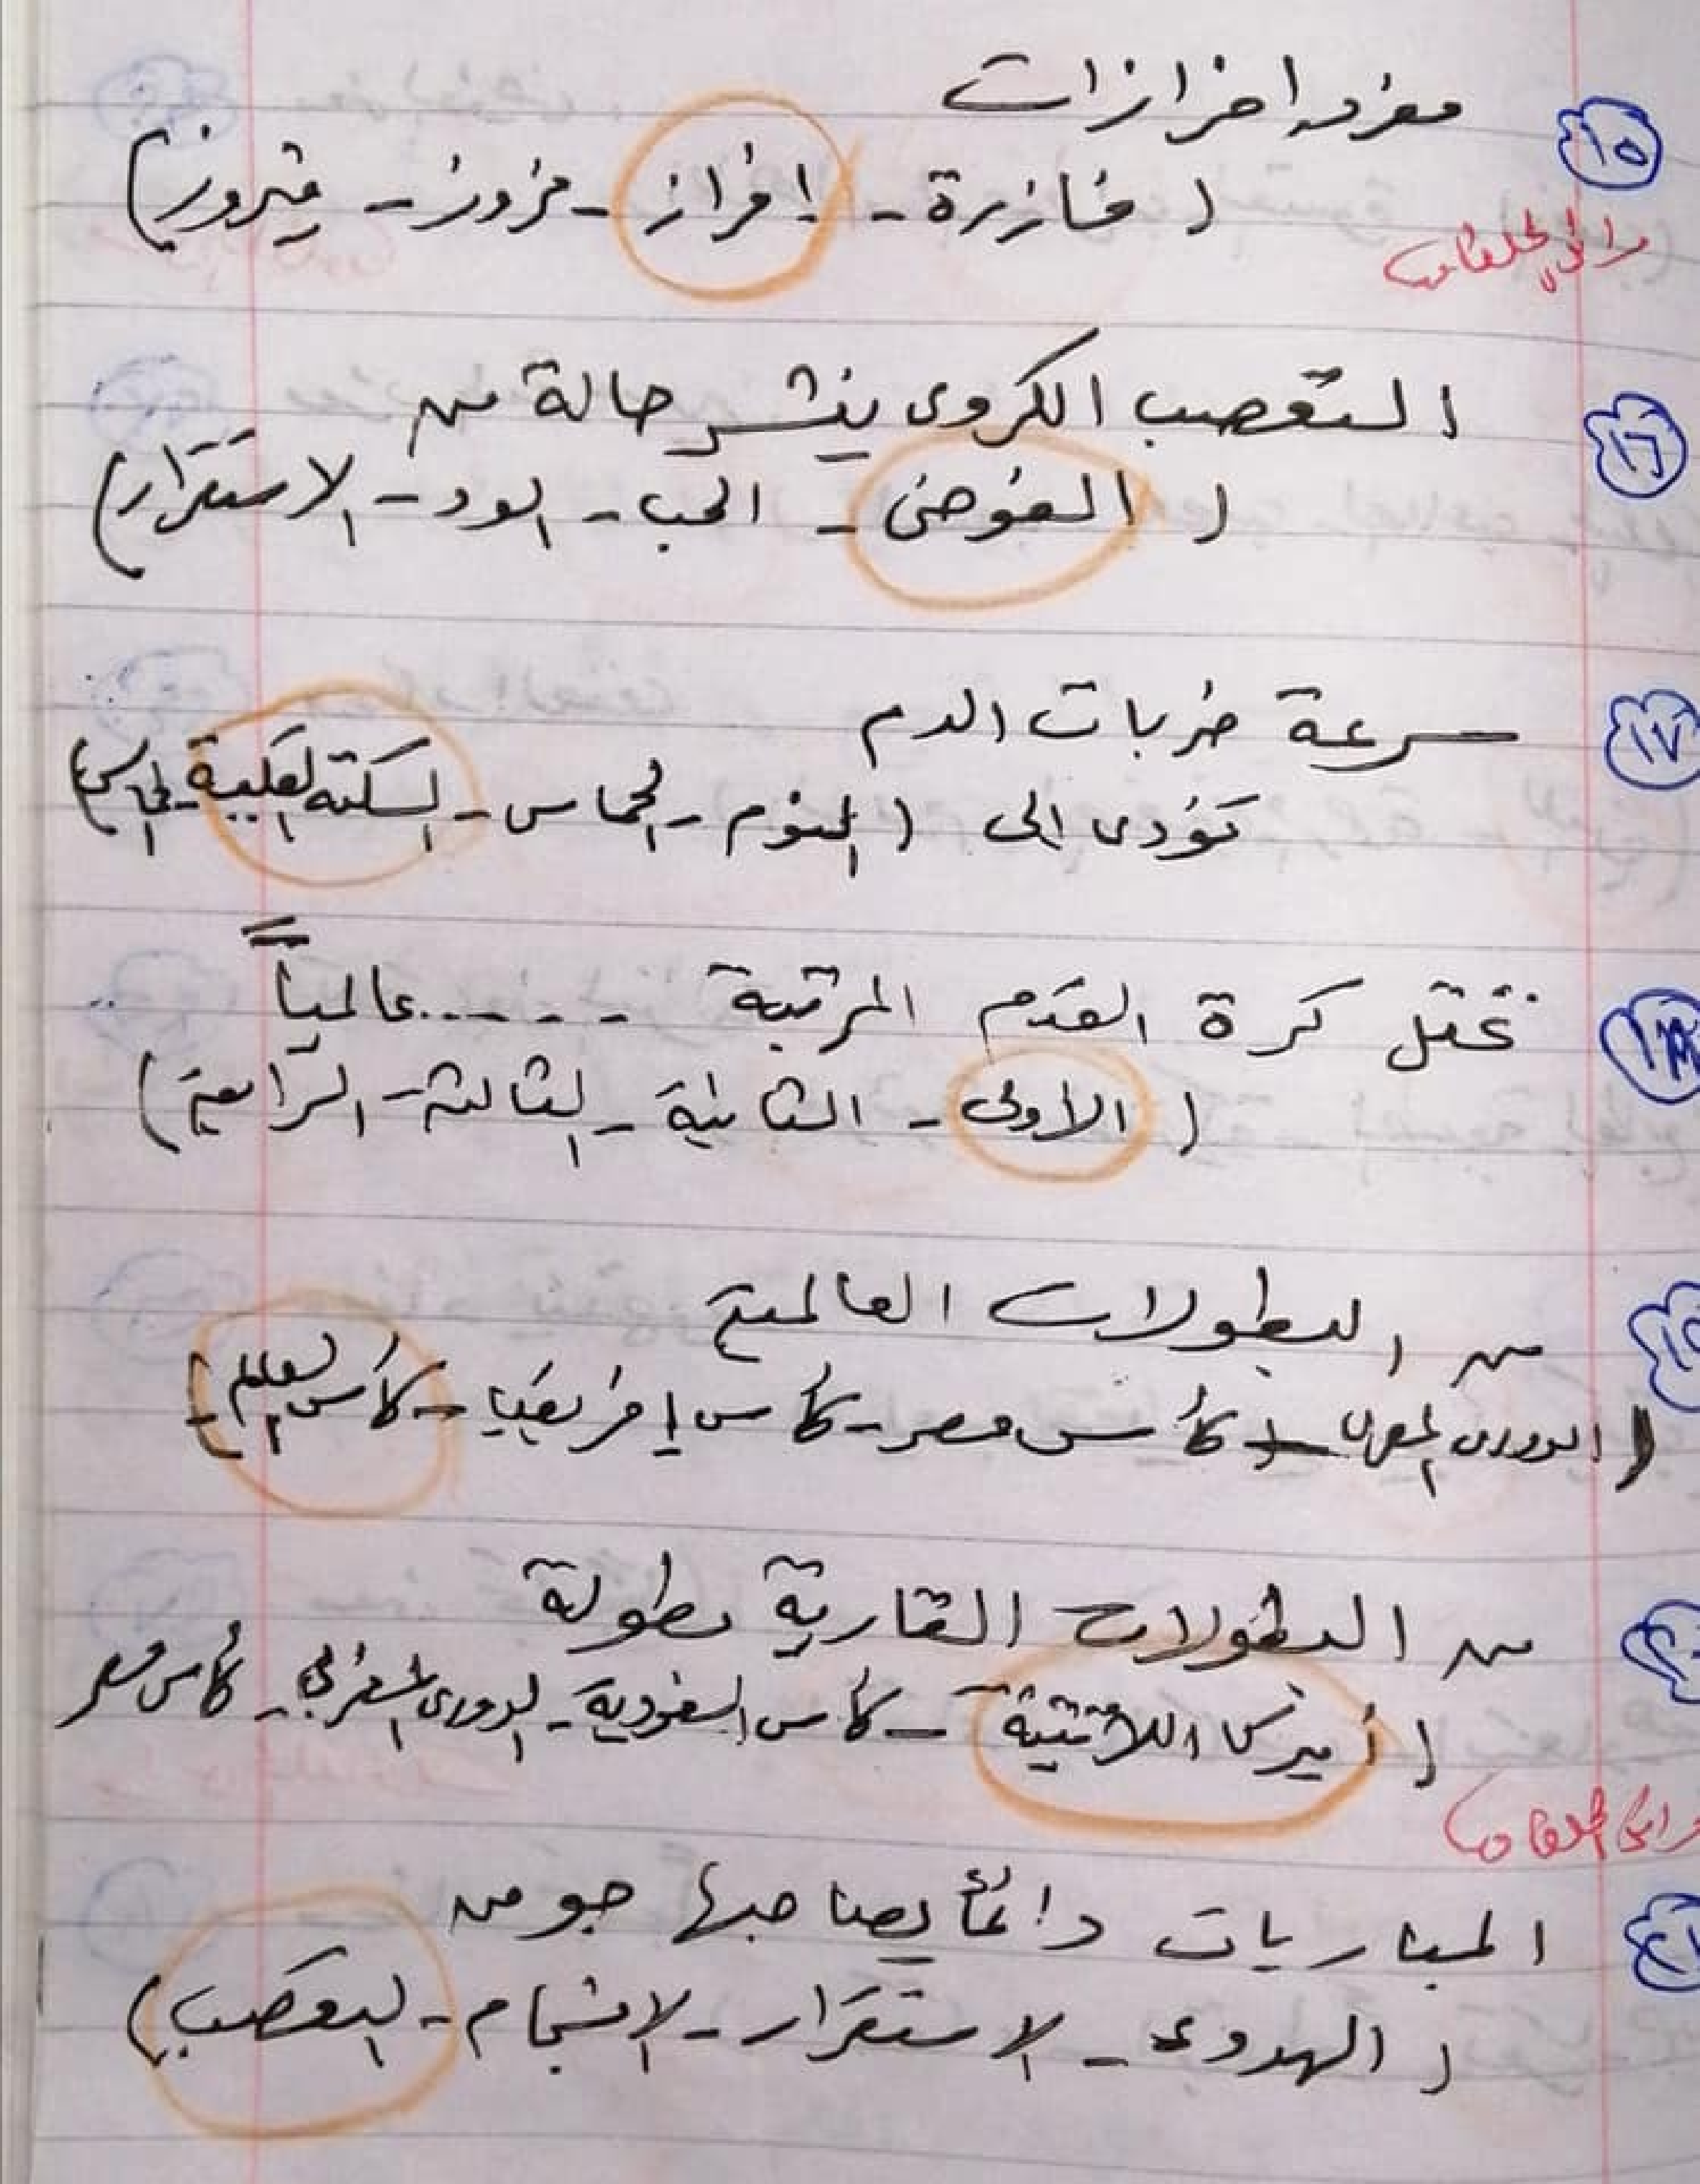 ١٥ مفرد افرازات
( فازرة - إفراز - فزوز - فيروز )
١٦ التعصب الكروى ينشر حالة من
( الفوضى - الحب - الود - الاستقرار )
١٧ سرعة ضربات الدم
تؤدى الى ( النوم - الحماس - السكتة القلبية - )
١٨ تحتل كرة القدم المرتبة ...... عالمياً
( الأولى - الثانية - الثالثة - الرابعة )
١٩ من البطولات العالمية
( الدورى المصرى - كأس مصر - كأس إفريقيا - كأس العالم )
٢٠ من البطولات القارية بطولة
( أميركا اللاتينية - كأس السعودية - الدورى المغربى - كأس مصر
٢١ المباريات دائماً يصاحبها جو من
( الهدوء - الاستقرار - الإنسجام - التعصب )